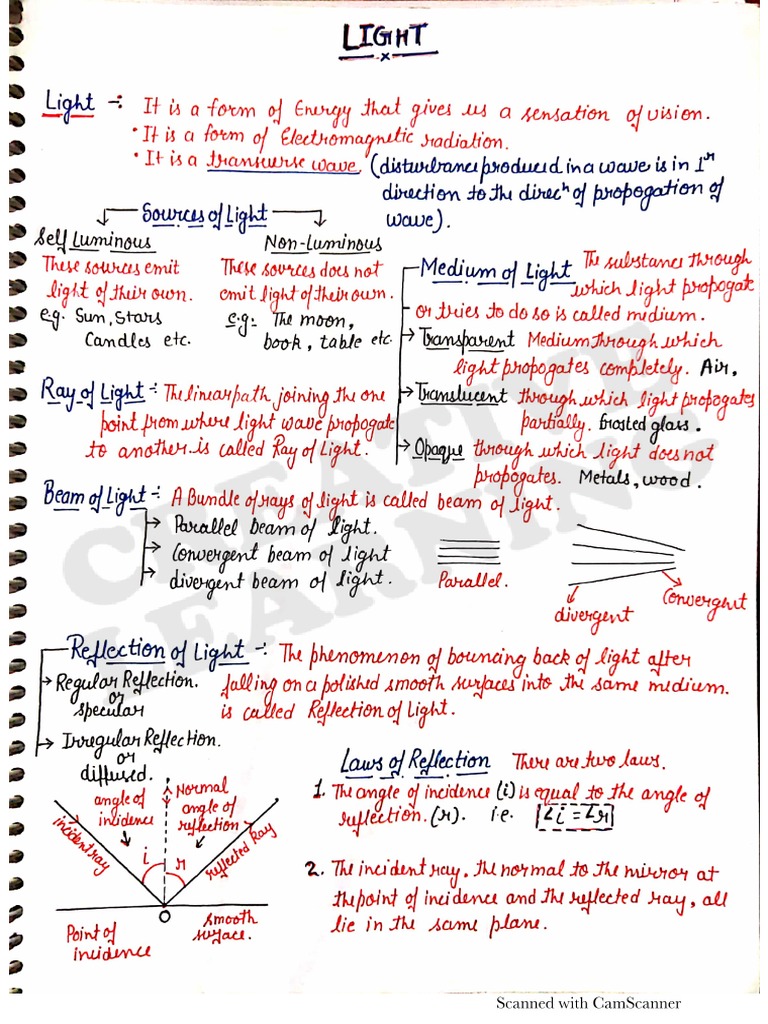 LIGHT
Light -: It is a form of Energy that gives us a sensation of vision.
• It is a form of Electromagnetic radiation.
• It is a transverse wave (disturbance produced in a wave is in ⊥r
direction to the direcn of propogation of
wave).
Sources of Light
Self Luminous
These sources emit
light of their own.
e.g. Sun, Stars
Candles etc.
Non-Luminous
These sources does not
emit light of their own.
e.g:- The moon,
book, table etc.
Medium of Light The substance through
which light propogate
or tries to do so is called midium.
→ Transparent Medium through which
light propogates completely. Air,
→ Translucent through which light propogates
partially. frosted glass.
→ Opaque through which light does not
propogates. Metals, wood.
Ray of Light -: The linear path joining the one
point from where light wave propogate
to another is called Ray of Light.
Beam of Light -: A Bundle of rays of light is called beam of light.
→ Parallel beam of light.
→ Convergent beam of light
→ divergent beam of light.
Parallel.
divergent
Convergent
Reflection of Light -: The phenomenon of bouncing back of light after
falling on a polished smooth surfaces into the same medium.
is called Reflection of Light.
→ Regular Reflection.
or
specular
→ Irregular Reflection.
or
diffused.
angle of
incidence
Normal
angle of
reflection
incident ray
i
r
reflected Ray
O
Point of
incidence
smooth
surface.
Laws of Reflection There are two laws.
1. The angle of incidence (i) is equal to the angle of
reflection. (r). i.e. ∠i = ∠r
2. The incident ray, the normal to the mirror at
the point of incidence and the reflected ray, all
lie in the same plane.
CREATIVE
LEARNING
Scanned with CamScanner